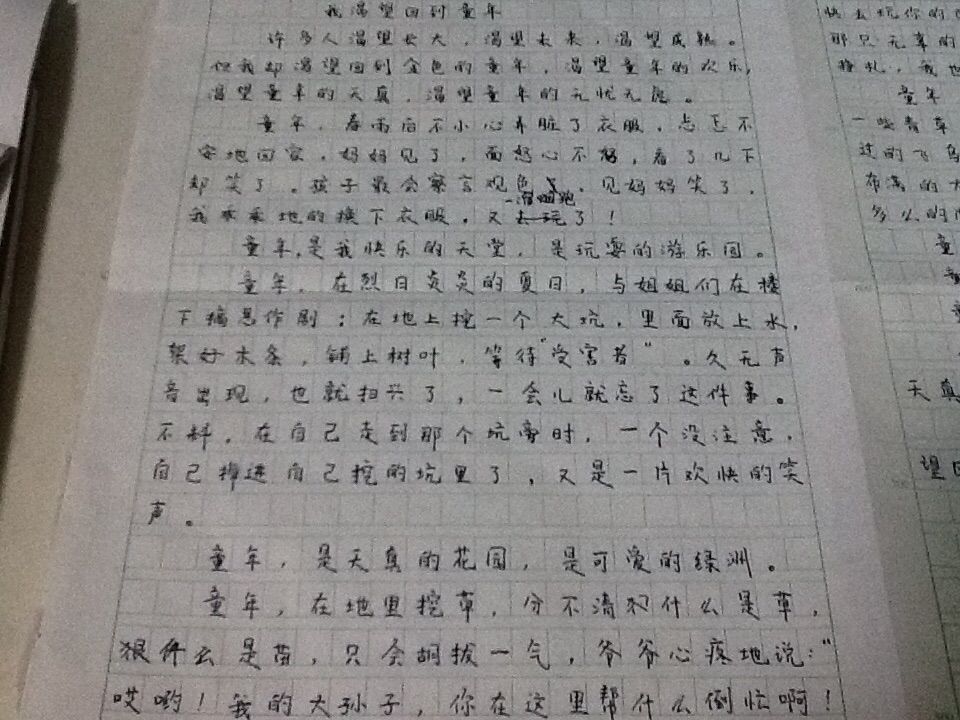 我渴望回到童年
许多人渴望长大，渴望未来，渴望成熟。
但我却渴望回到金色的童年，渴望童年的欢乐，
渴望童年的天真，渴望童年的无忧无虑。
童年，春雨后不小心弄脏了衣服，忐忑不
安地回家，妈妈见了，面怒心不怒，看了几下
却笑了。孩子最会察言观色了，见妈妈笑了，
我乖乖地的换下衣服，又一溜烟跑了！
童年，是我快乐的天堂，是玩耍的游乐园。
童年，在烈日炎炎的夏日，与姐姐们在楼
下搞恶作剧：在地上挖一个大坑，里面放上水，
架好木条，铺上树叶，等待"受害者"。久无声
音出现，也就扫兴了，一会儿就忘了这件事。
不料，在自己走到那个坑旁时，一个没注意，
自己掉进自己挖的坑里了，又是一片欢快的笑
声。
童年，是天真的花园，是可爱的绿洲。
童年，在地里挖草，分不清和什么是草，
什么是苗，只会胡拔一气，爷爷心疼地说："
哎哟！我的大孙子，你在这里帮什么倒忙啊！
快去玩你的
那只无辜的
挣扎，我也
童年
一些青草
过的飞鸟
布满的大
多么的
童
天真
望回